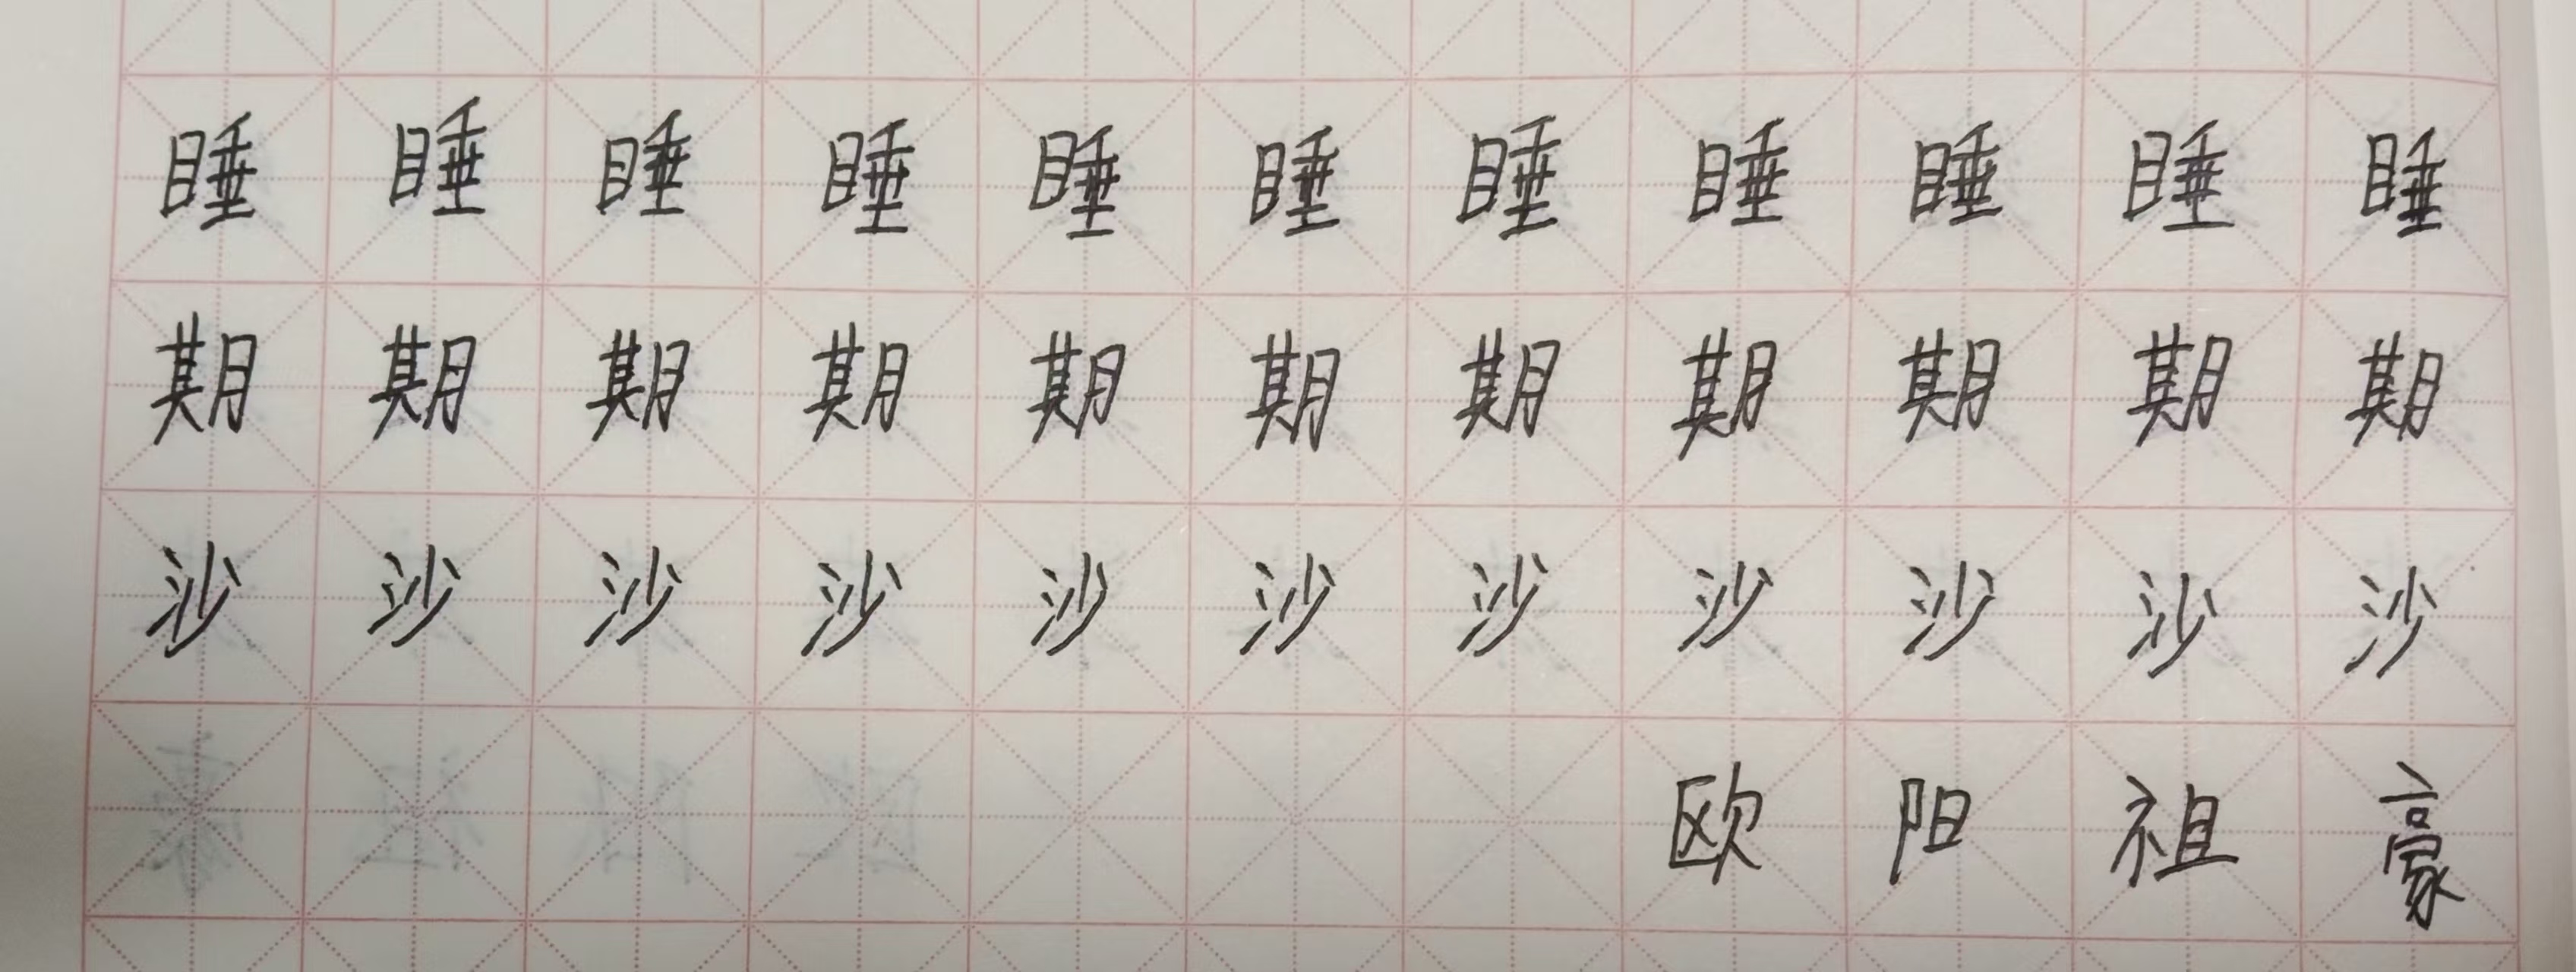 睡睡睡睡睡睡睡睡睡睡睡
期期期期期期期期期期期
沙沙沙沙沙沙沙沙沙沙沙
欧阳祖豪